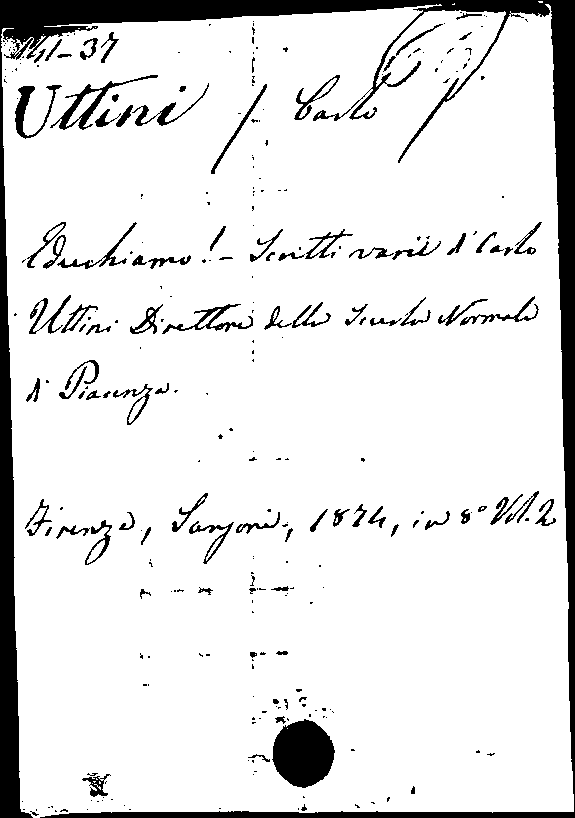 141-37
Uttini / Carlo /
Educhiamo! - Scritti varii di Carlo
Uttini Direttore della Scuola Normale
di Piacenza.
Firenze, Sansoni, 1874, in 8° Vol. 2